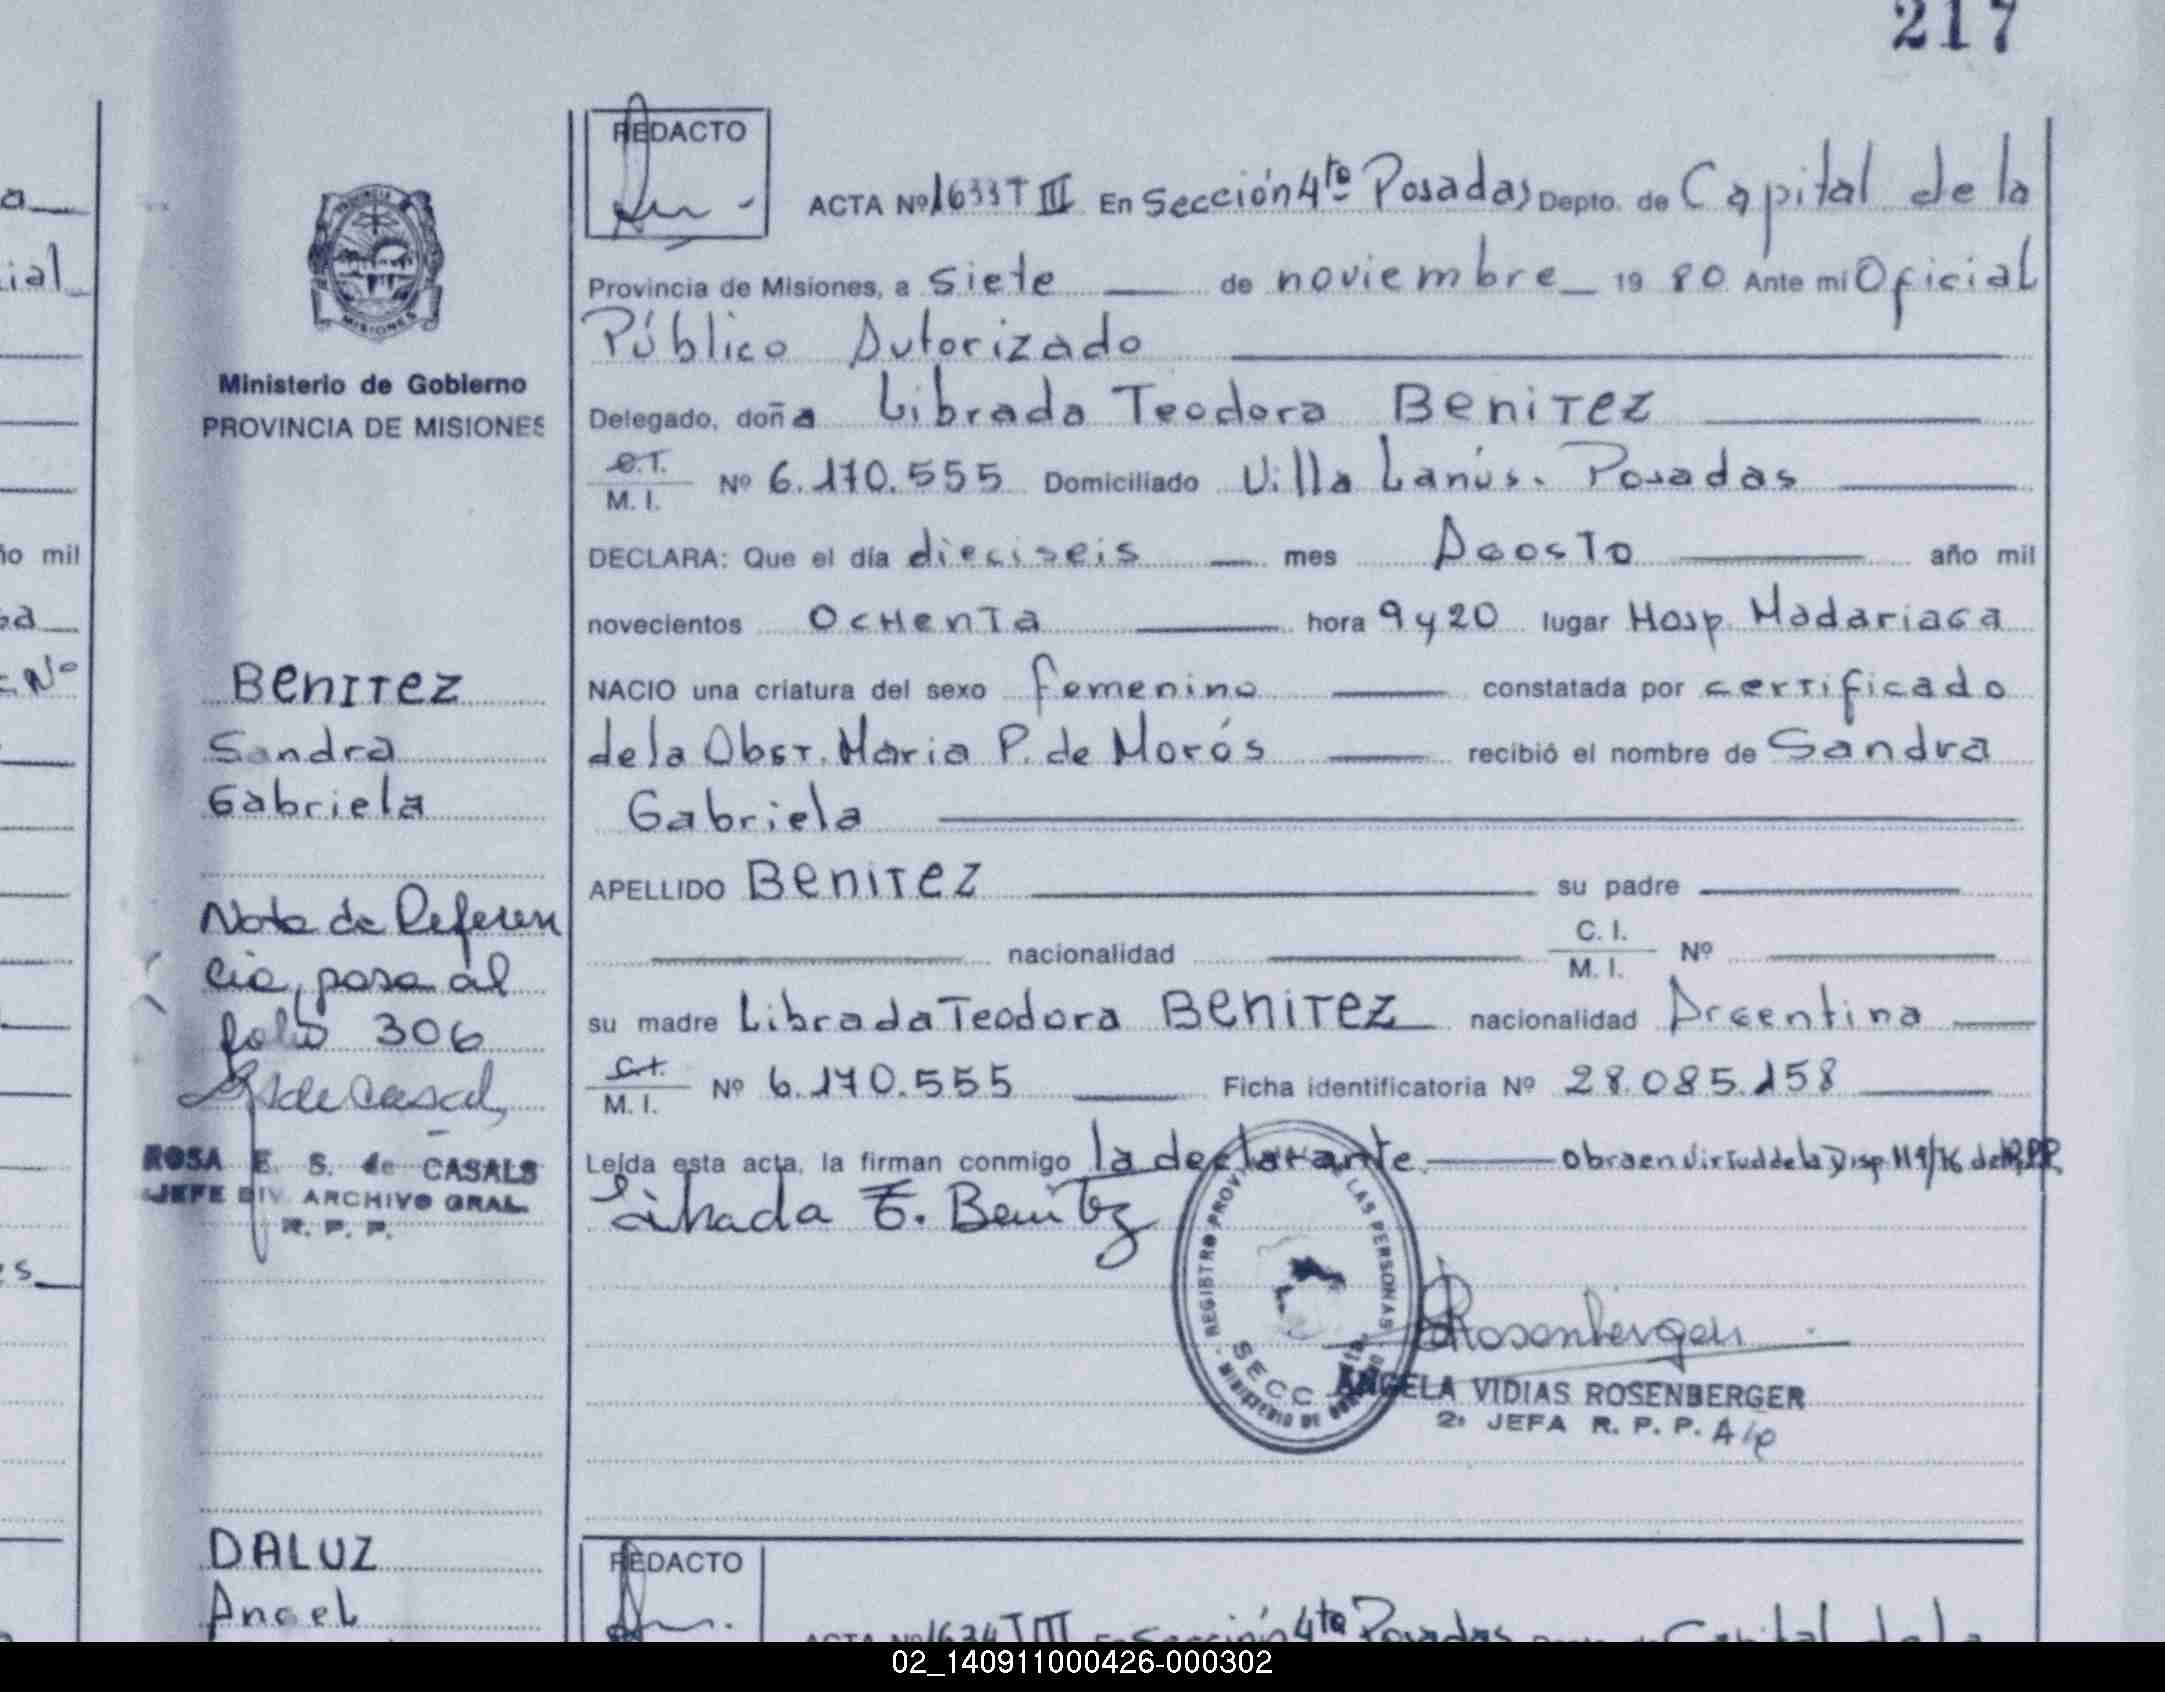 217
REDACTO
ACTA Nº 1633 T III En Sección 4ta Posadas Depto. de Capital de la
Provincia de Misiones, a siete de noviembre 19 80 Ante mí Oficial
Público Autorizado
Delegado, doña Librada Teodora BENITEZ
C.I.
M. I. Nº 6.170.555 Domiciliado Villa Lanús. Posadas
DECLARA: Que el día dieciseis mes Agosto año mil
novecientos OcHenTa hora 9 y 20 lugar Hosp. Madariaga
NACIO una criatura del sexo femenino constatada por certificado
de la Obst. Maria P. de Morós recibió el nombre de Sandra
Gabriela
APELLIDO BENITEZ su padre
nacionalidad C. I.
M. I. Nº
su madre Librada Teodora BENITEZ nacionalidad Argentina
C.I.
M. I. Nº 6.170.555 Ficha identificatoria Nº 28.085.158
Leída esta acta, la firman conmigo la declarante. obra en virtud de la Disp. 119/76 del R.P.P.
Librada T. Benitez
REGISTRO PROVINCIAL DE LAS PERSONAS
SECC. 4ta.
MINISTERIO DE GOBIERNO
Rosenberger
ANGELA VIDIAS ROSENBERGER
2ª JEFA R. P. P. A/c
PROVINCIA
MISIONES
Ministerio de Gobierno
PROVINCIA DE MISIONES
BENITEZ
Sandra
Gabriela
Nota de Referen
cia, pasa al
folio 306
ES de Casals
ROSA E. S. de CASALS
JEFE DIV. ARCHIVO GRAL.
R. P. P.
DALUZ
Angel
REDACTO
ACTA Nº 1634 T III En Sección 4ta Posadas Depto. de Capital de la
a
ial
ño mil
Nº
s
02_140911000426-000302